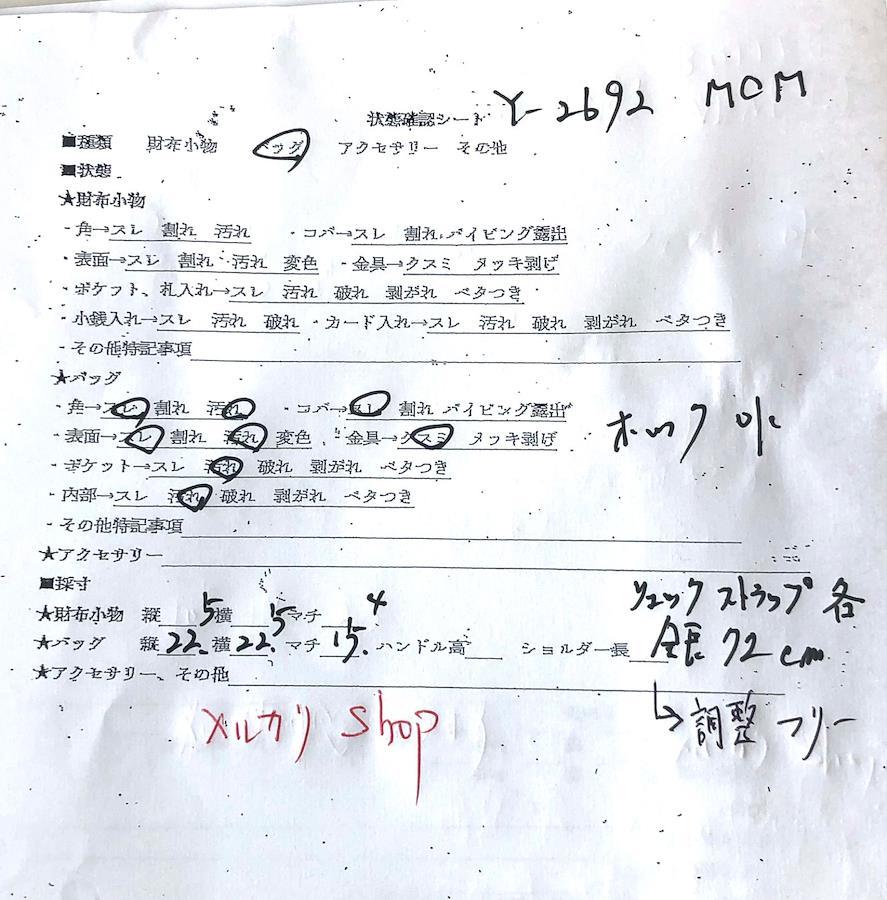 状態確認シート Y-2692 MCM
■種類 財布小物 バッグ アクセサリー その他
■状態
★財布小物
・角→スレ 割れ 汚れ ・コバ→スレ 割れ パイピング露出
・表面→スレ 割れ 汚れ 変色 ・金具→クスミ メッキ剥げ
・ポケット、札入れ→スレ 汚れ 破れ 剥がれ ベタつき
・小銭入れ→スレ 汚れ 破れ ・カード入れ→スレ 汚れ 破れ 剥がれ ベタつき
・その他特記事項
★バッグ
・角→スレ 割れ 汚れ ・コバ→スレ 割れ パイピング露出
・表面→スレ 割れ 汚れ 変色 ・金具→クスミ メッキ剥げ ホック
・ポケット→スレ 汚れ 破れ 剥がれ ベタつき
・内部→スレ 汚れ 破れ 剥がれ ベタつき
・その他特記事項
★アクセサリー
■採寸
★財布小物 縦 5 横 15 マチ 4
★バッグ 縦 22. 横 22. マチ 15. ハンドル高 ショルダー長
リュックストラップ 各
全長 72cm
★アクセサリー、その他
↳調整フリー
メルカリ shop